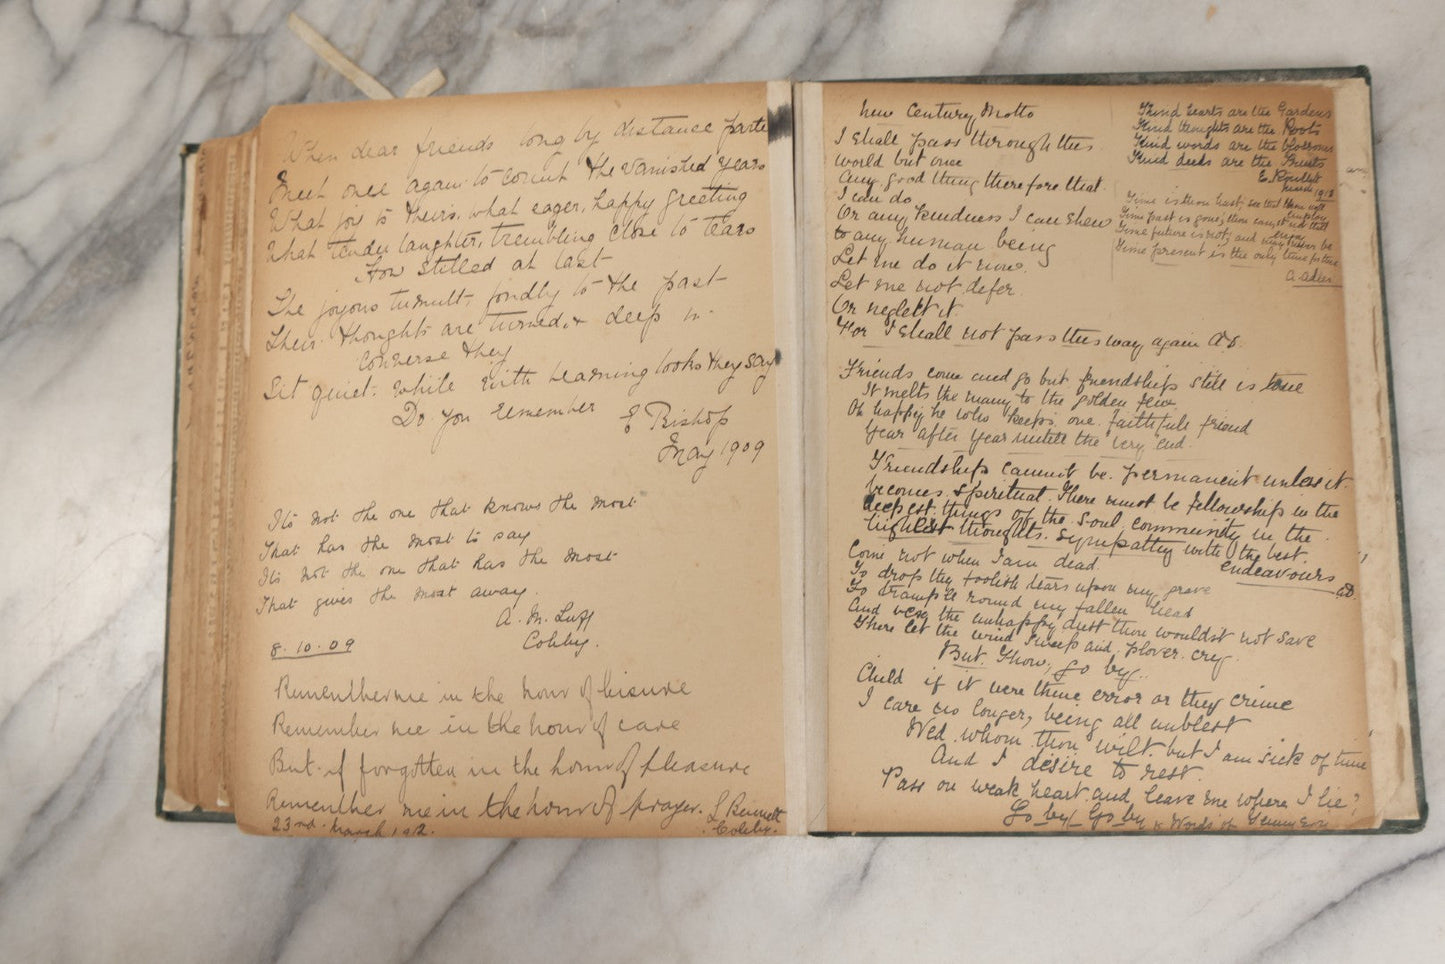 When dear friends long by distance parte
Meet once again to count the vanished years
What joy is theirs, what eager, happy greeting
What tender laughter, trembling close to tears
How stilled at last
The joyous tumult, fondly to the past
Their thoughts are turned, & deep in
Converse they
Sit quiet: while with learning looks they say
Do you remember
E Bishop
May 1909
It's not the one that knows the most
That has the most to say
It's not the one that has the most
That gives the most away.
A. M. Luff
Cobby.
8.10.09
Remember me in the hour of leisure
Remember me in the hour of care
But if forgotten in the hour of pleasure
Remember me in the hour of prayer.
23rd March 1912.
New Century Motto
I shall pass through this
world but once
Any good thing therefore that
I can do
Or any kindness I can shew
to any human being
Let me do it now.
Let me not defer.
Or neglect it.
For I shall not pass this way again A.D.
Kind hearts are the Gardens
Kind thoughts are the Roots
Kind words are the blossoms
Kind deeds are the Fruits
March 1912
Time is thou hast, see that thou well
employ
Time past is gone, thou canst not that
enjoy
Time future is not, and may never be
Time present is the only time for thee
Friends come and go but friendships still is true
It melts the many to the golden few
Oh happy he who keeps one faithful friend
Year after year until the very end.
Friendship cannot be permanent unless it
becomes spiritual. There must be fellowship in the
deepest things of the soul, community in the
highest thoughts. sympathy with the best
endeavours
AD.
Come not when I am dead.
To drop thy foolish tears upon my grave
To trample round my fallen head
And vex the unhappy dust thou wouldst not save
There let the wind sweep and plover cry.
But Thou, go by.
Child if it were thine error or thy crime
I care no longer, being all unblest
Wed whom thou wilt but I am sick of time
And I desire to rest.
Pass on weak heart and leave me where I lie?
Go by Go by
Words of Tennyson